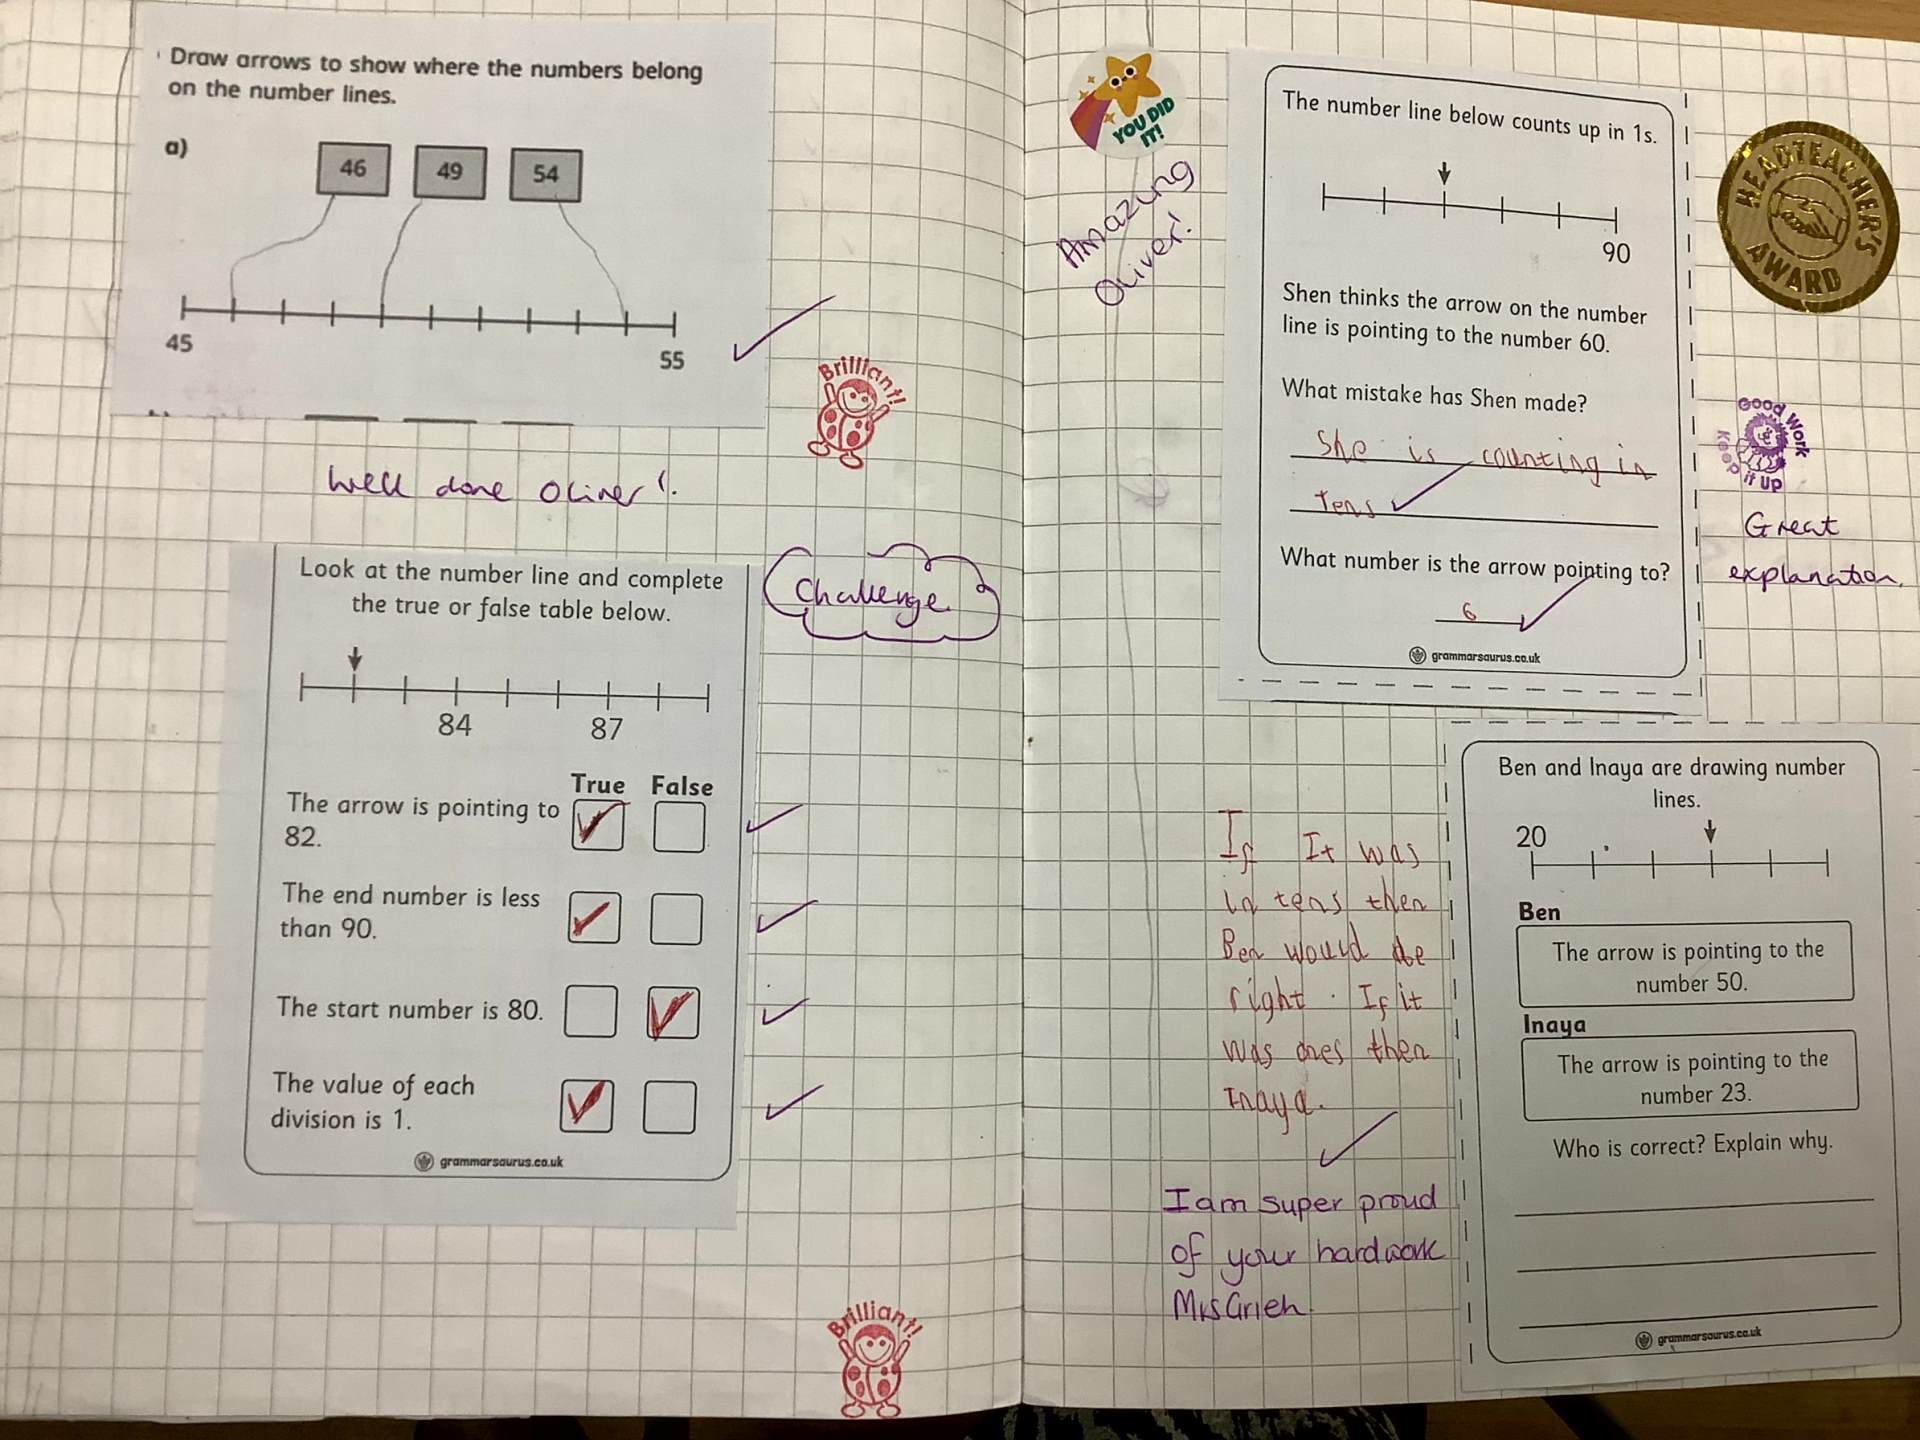 Draw arrows to show where the numbers belong
on the number lines.
a)
46 49 54
45 55
Brilliant!
Well done Oliver!.
Challenge
Look at the number line and complete
the true or false table below.
84 87
True False
The arrow is pointing to
82.
The end number is less
than 90.
The start number is 80.
The value of each
division is 1.
grammarsaurus.co.uk
Brilliant!
YOU DID
IT!
Amazing
Oliver!
The number line below counts up in 1s.
90
Shen thinks the arrow on the number
line is pointing to the number 60.
What mistake has Shen made?
She is counting in
Tens
What number is the arrow pointing to?
6
grammarsaurus.co.uk
HEADTEACHER'S
AWARD
Good Work
Keep it Up
Great
explanation.
If It was
in tens then
Ben would be
right. If it
was ones then
Inaya.
I am super proud
of your hardwork
Mrs
Ben and Inaya are drawing number
lines.
20
Ben
The arrow is pointing to the
number 50.
Inaya
The arrow is pointing to the
number 23.
Who is correct? Explain why.
grammarsaurus.co.uk